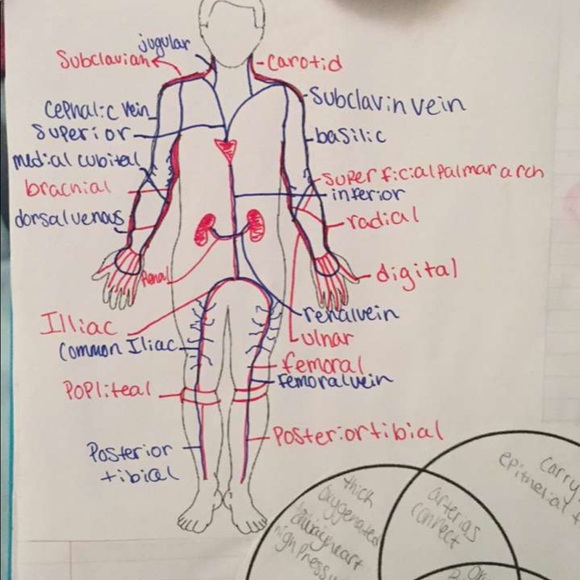 jugular
Subclavian
carotid
Cephalic vein
Subclavin vein
Superior
basilic
medial cubital
superficial palmar arch
bracnial
inferior
dorsal venous
radial
Renal
digital
renal vein
Illiac
ulnar
Common Iliac
femoral
Femoral vein
Popliteal
Posterior tibial
Posterior
tibial
carry
epithelial
thick
oxygenated
arterias
connect
away heart
high Press